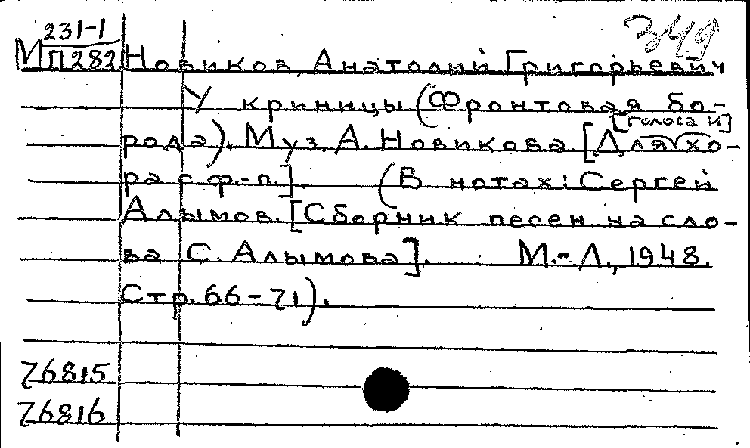 231-1
М П282 Новиков, Анатолий Григорьевич 349
У криницы (Фронтовая бо-
[голоса и]
рода). Муз. А. Новикова. [Для хо-
ра с ф.-п.]. (В нотах: Сергей
Алымов. [Сборник песен на сло-
ва С. Алымова]. М.-Л., 1948.
Стр. 66-71).
76815
76816